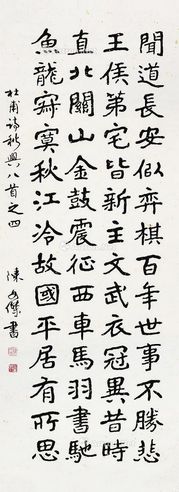 聞道長安似弈棋百年世事不勝悲
王侯第宅皆新主文武衣冠異昔時
直北關山金鼓震征西車馬羽書馳
魚龍寂寞秋江冷故國平居有所思
杜甫詩秋興八首之四
陳傑書